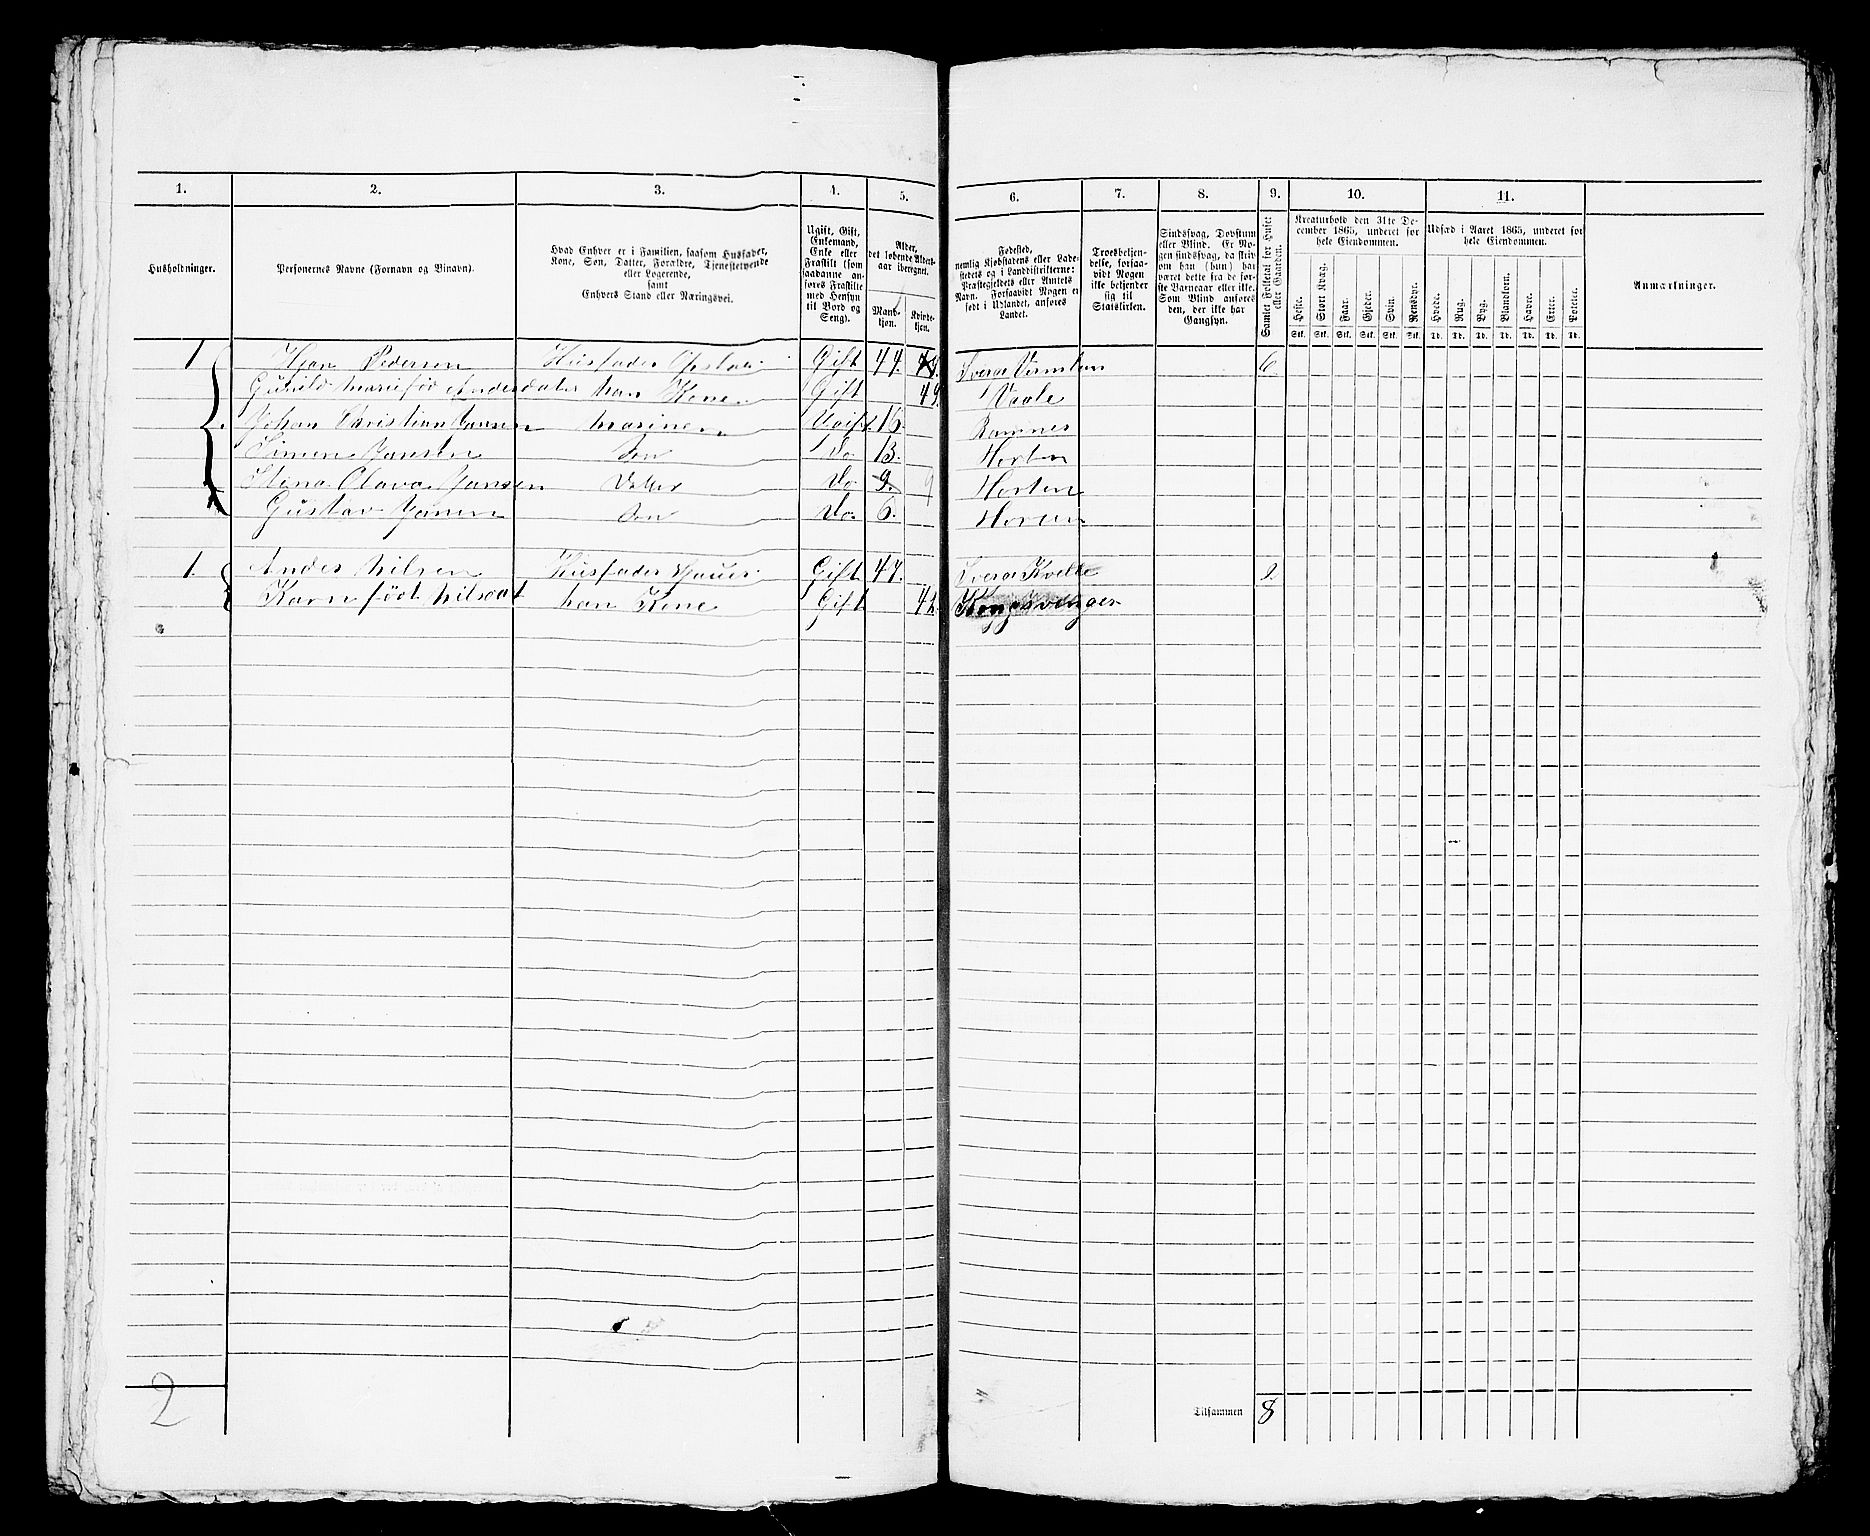 1. 2. 3. 4. 5. 6. 7. 8. 9. 10. 11.
Husholdninger.
Personernes Navne (Fornavn og Binavn).
Hvad Enhver er i Familien, saasom Husfader,
Kone, Søn, Datter, Forældre, Tjenestetyende
eller Logerende,
samt
Enhvers Stand eller Næringsvei.
Ugift, Gift,
Enkemand,
Enke eller
Fraskilt (som
saadanne an-
føres Fraskilte
med Hensyn
til Bord og
Seng).
Alder,
det løbende Alders-
aar iberegnet.
Mand-
kjøn.
Kvinde-
kjøn.
Fødested,
nemlig Kjøbstadens eller Lade-
stedets og i Landdistrikterne:
Præstegjeldets eller Amtets
Navn. Forsaavidt Nogen er
født i Udlandet, anføres
Landet.
Troesbekjen-
delse, forsaa-
vidt Nogen
ikke bekjender
sig til
Statskirken.
Sindssvag, Døvstum
eller Blind. Er No-
gen sindssvag, da skriv
om han (hun) har
været dette fra de før-
ste Barneaar eller ikke.
Som Blind anføres
den, der ikke har
Gangsyn.
Samlet Folketal for Huset
eller Gaarden.
Kreaturhold den 31te De-
cember 1865, underet for
hele Eiendommen.
Heste. Stort Kvæg. Faar. Gjeder. Svin. Rensdyr.
Stk. Stk. Stk. Stk. Stk. Stk.
Udsæd i Aaret 1865, underet for
hele Eiendommen.
Hvede. Rug. Byg. Blandkorn. Havre. Erter. Poteter.
Td. Td. Td. Td. Td. Td. Td.
Anmærkninger.
1 Pedersen Husfader Gift 44. Sverge Vermlan 6
Gunild Marie fød Andersdater han Kone Gift 49. Vaale
Johan Christian Jansen Ugift. 16. Ramnes
Simen Jansen Søn Do 13. Horten
Stina Olava Jansen Datter Do 9. 9 Horten
Gustav Jansen Søn Do. 6. Horten
1. Andes Nilsen Husfader Gift 47. Sverge 2
Karn født Nilsdat han Kone Gift 42 Kongsvinger
2
Tilsammen 8